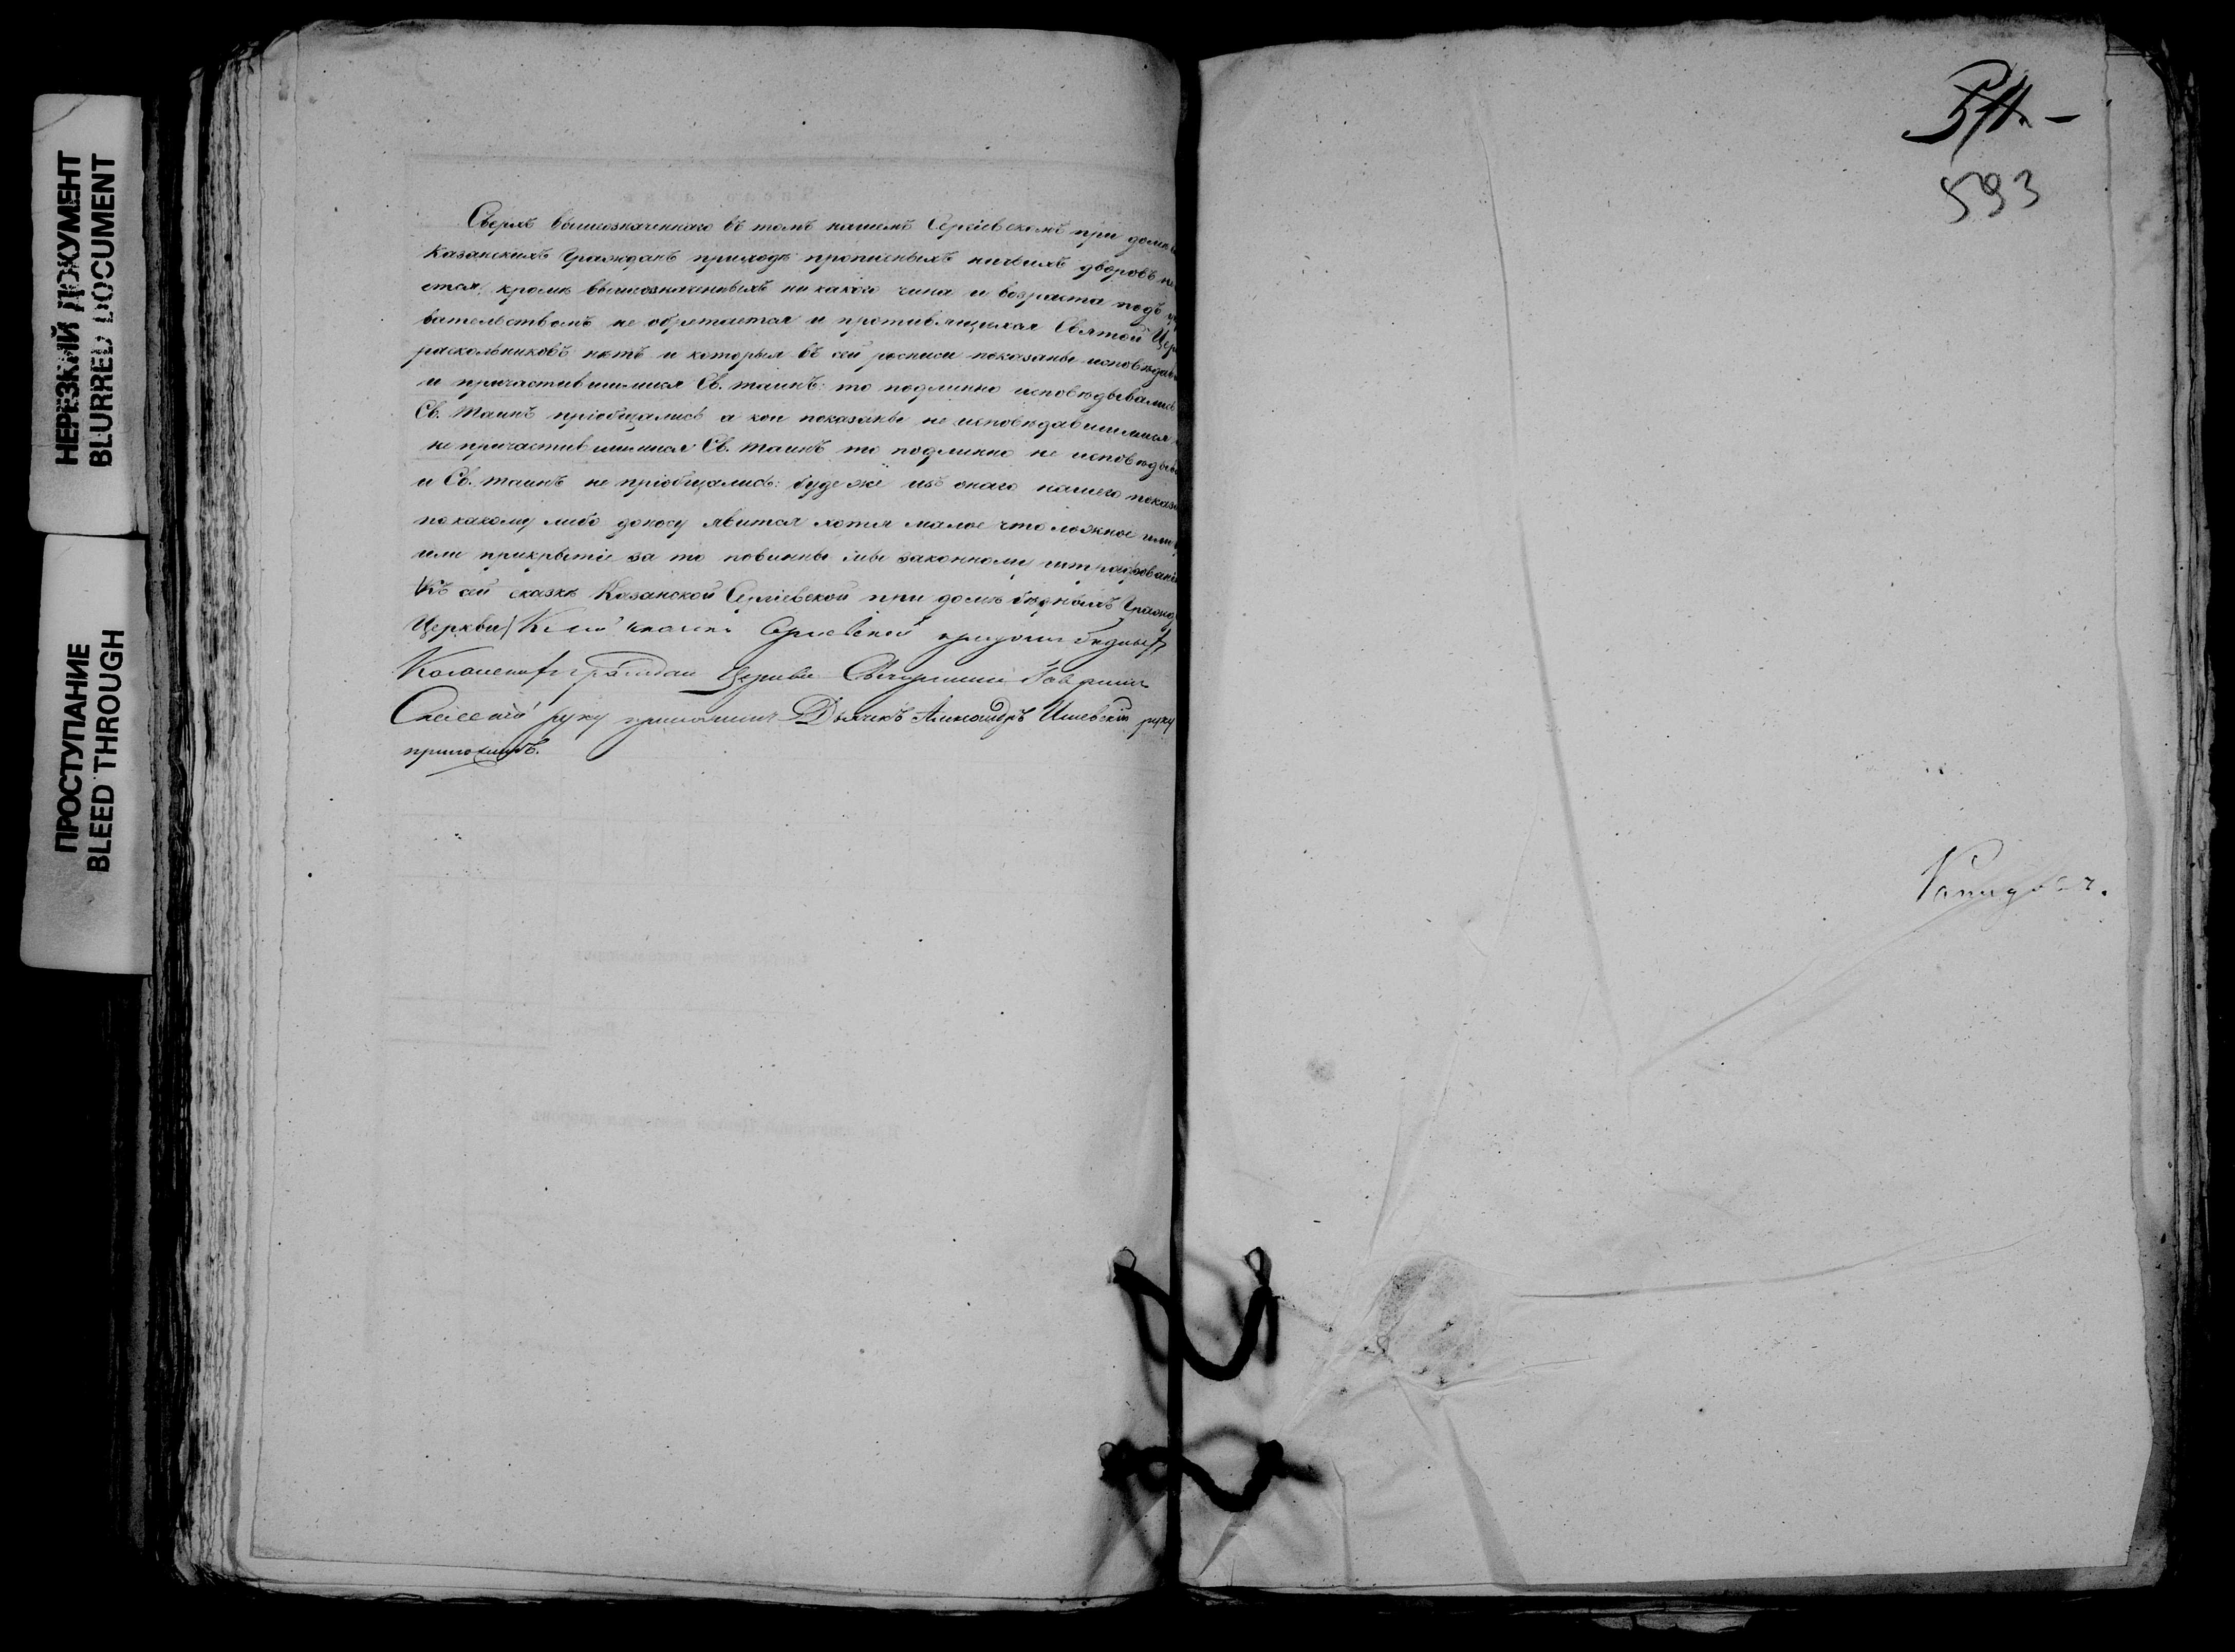 НЕРЕЗКИЙ ДОКУМЕНТ
BLURRED DOCUMENT
ПРОСТУПАНИЕ
BLEED THROUGH
Сверхъ вышеозначеннаго въ томъ нашемъ Сергіевскомъ при домѣ
Казанскихъ Гражданъ приходѣ прописныхъ ничьихъ дворовъ
ется, кромѣ вышеозначенныхъ никакого чина и возраста подъ
вательствомъ не обрѣтается и противящихся Святой Цер
раскольниковъ нѣтъ и которыя въ сей росписи показаны исповѣдав
и причастившимися Св. таинъ: то подлинно исповѣдывались
Св. Таинъ пріобщались а кои показаны не исповѣдавшимися
не причастившимися Св. таинъ то подлинно не исповѣдыва
и Св. таинъ не пріобщались: буде же изъ онаго нашего показа
по какому либо доносу явится хотя малое что ложное или
или прикрытіе за то повинны мы законному штрафовані
Къ сей сказкѣ Казанской Сергіевской при домѣ бѣдныхъ Гражд
Церкви/ Къ сей Сергіевской при домѣ бѣдныхъ
Казанскихъ гражданъ Церкви Священникъ Гавріилъ
руку приложилъ Дьячекъ Александръ руку
приложилъ.
593